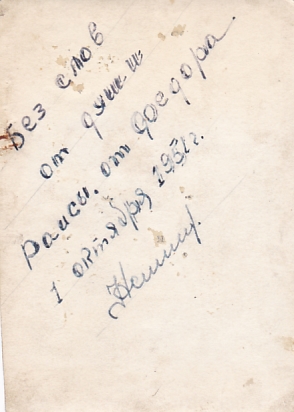 Без слов
от души
раисы. от Федора.
1 октября 1951г.